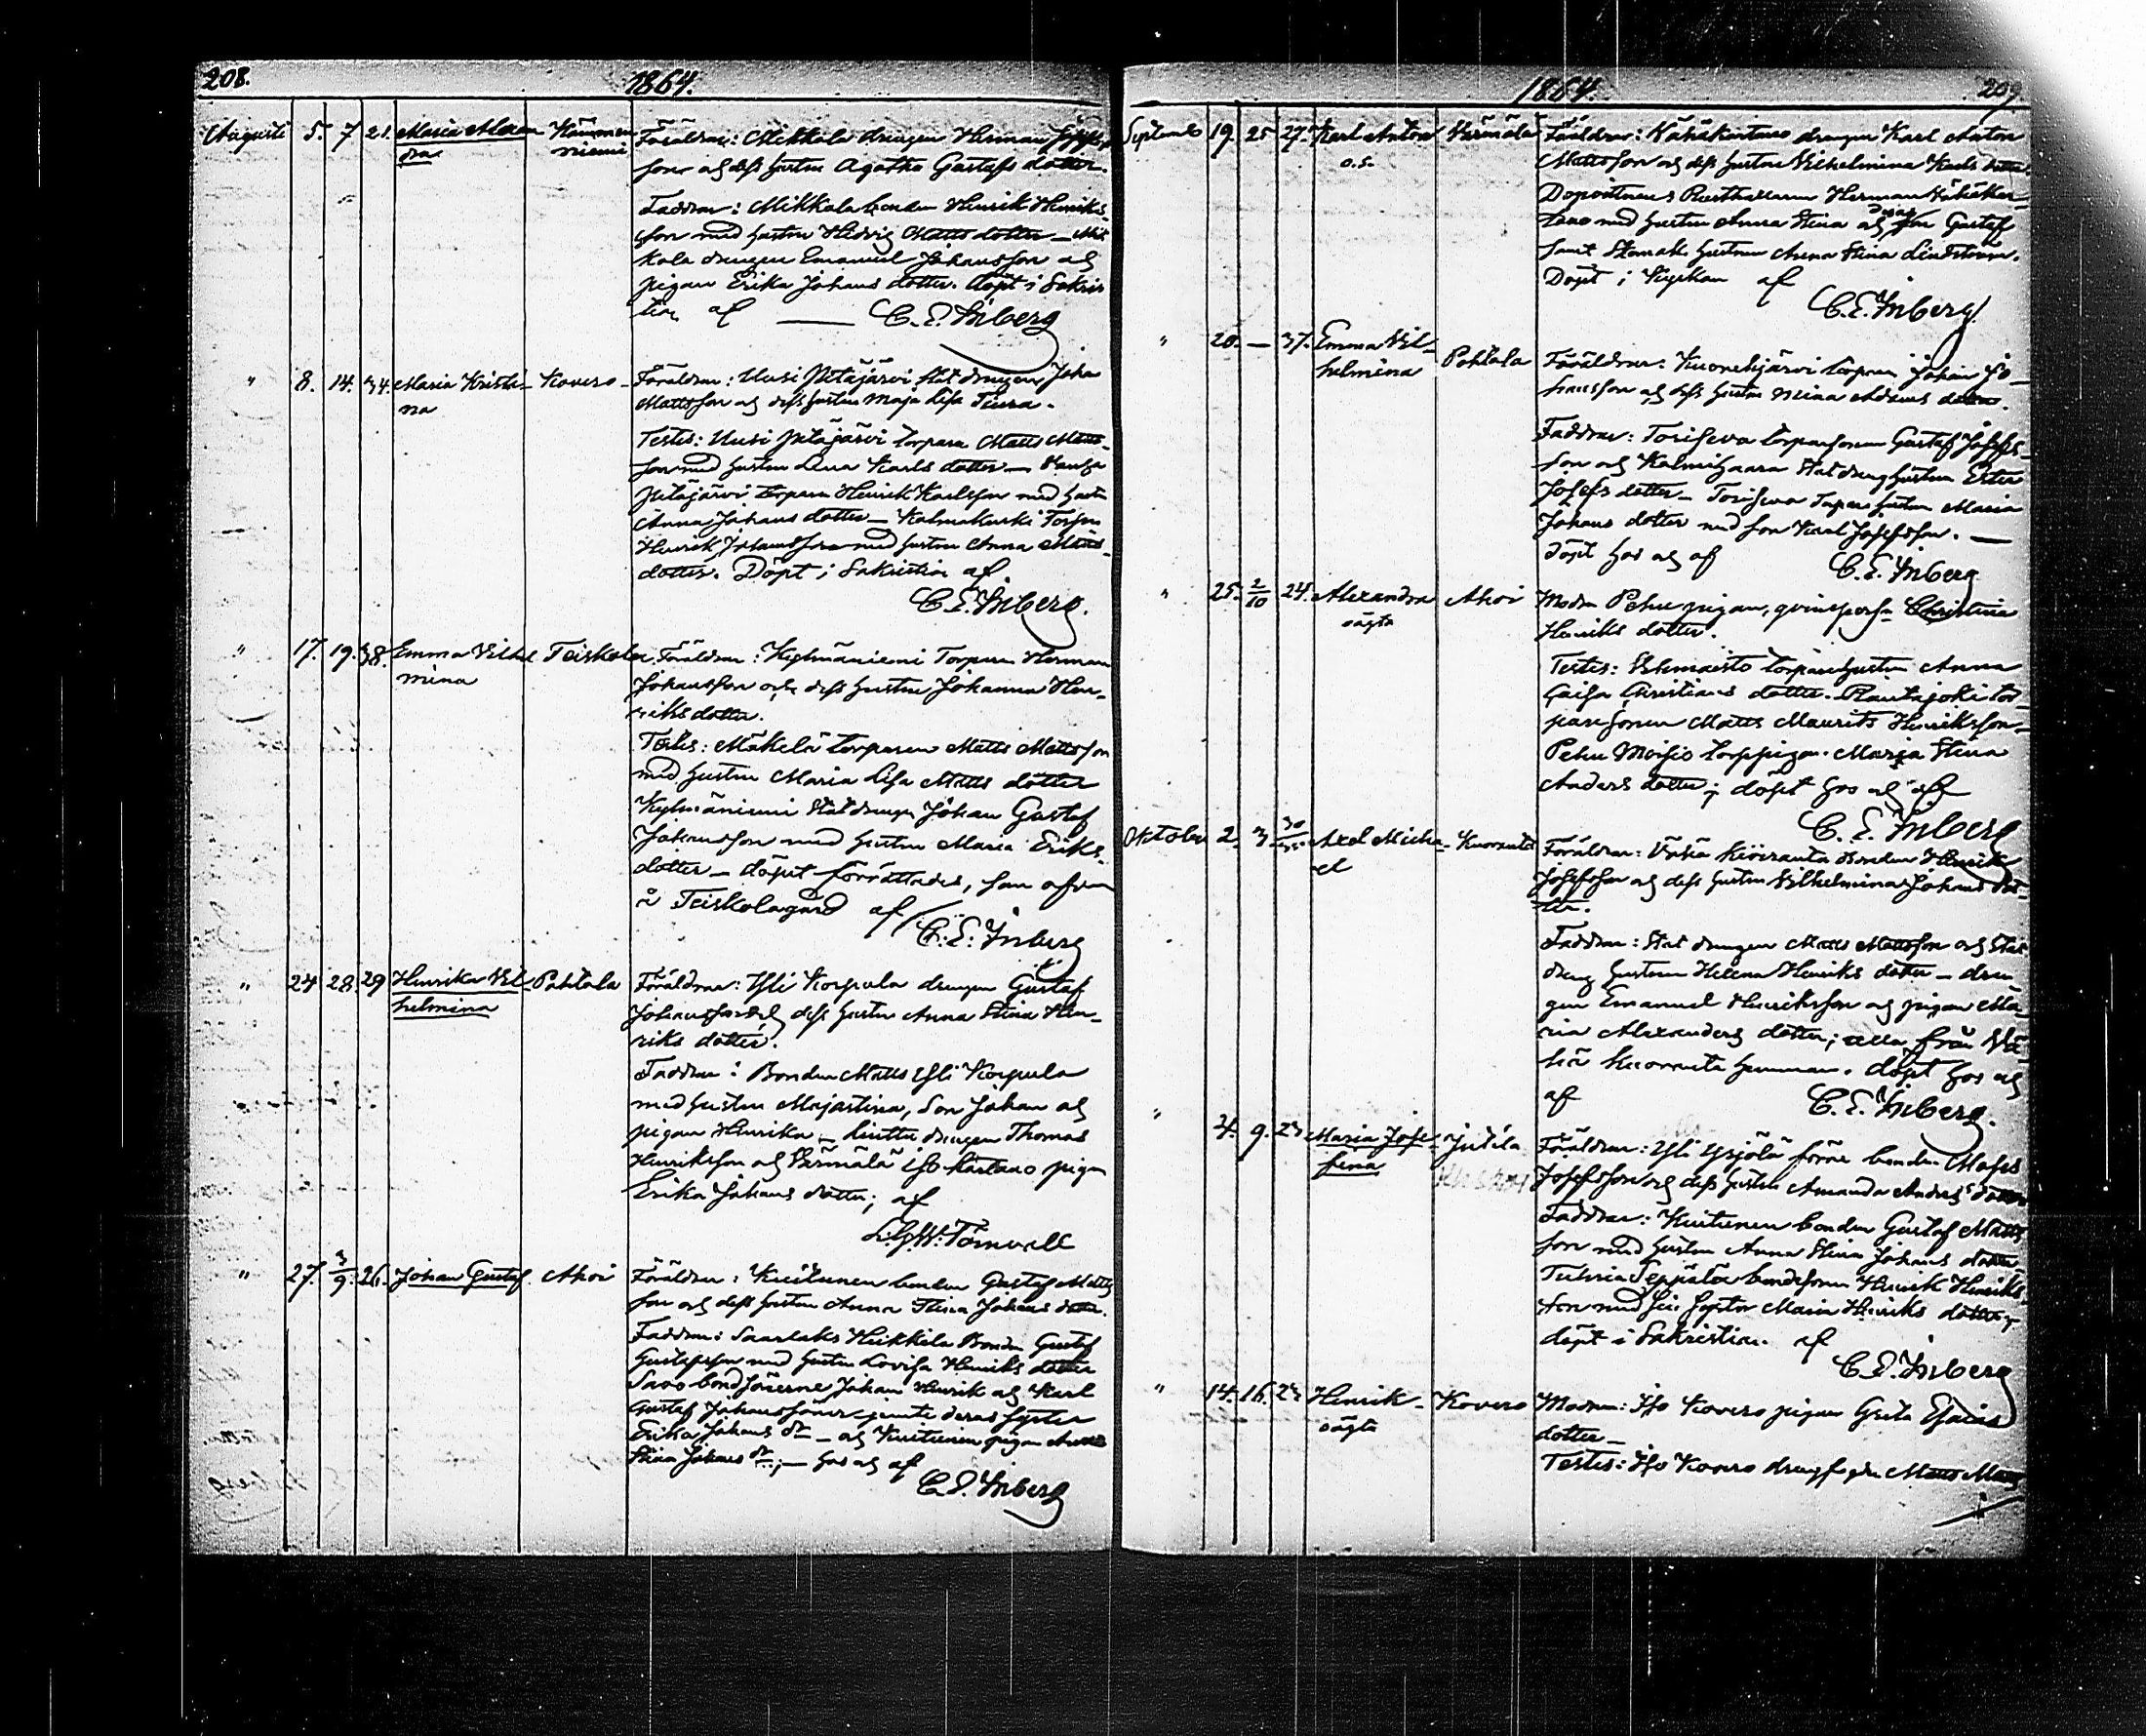 208.
1864.
Augusti 5. 7 21. Maria Alexan Kämmen Föräldrar: Mikkola drengen Herman
dra niemi son och dess hustru Agatha Gustafs dotter.
Faddrar: Mikkala bonden Henrik Henriks-
son med hustru Hedvig Matts dotter - Mik
kola drengen Emanuel Johansson och
pigan Erika Johans dotter. döpt i Sakris
tian af C. E. Inberg
" 8. 14. 34. Maria Kristi- Kovero Föräldrar: Uusi Pitäjärvi Stat drengen Johan
na Mattsson och dess hustru Maja Lisa Tiura.
Testes: Uusi Pitäjärvi torparn Matts Matts-
son med hustru Lena Karls dotter -
Pitäjärvi torparn Henrik Karlsson med hustru
Anna Johans dotter - Kalmakurki
Henrik Johansson med hustru Anna Matts
dotter. Döpt i Sakristian af
C. E. Inberg.
" 17. 19. 38. Emma Vilhel Teiskola Föräldrar: Kylmäniemi Torparn Herman
mina Johansson och dess hustru Johanna Hen-
riks dotter.
Testes: Mäkelä torparen Matts Mattsson
med hustru Maria Lisa Matts dotter
Kylmäniemi Stat drengen Johan Gustaf
Johansson med hustru Maria Eriks-
dotter - döpet förrättades, som ofvan
å Teiskola gård af
C. E. Inberg
" 24 28. 29 Henrika Vil- Pohtola Föräldrar: Yli Korpula drengen Gustaf
helmina Johansson och dess hustru Anna Stina Hen-
riks dotter.
Faddrar: Bonden Matts Yli Korpula
med hustru Majastina, Son Johan och
pigan Henrika - drengen Thomas
Henriksson och Värmälä Iso-kartano pigan
Erika Johans dotter; af
Törnvall
" 27. 3/9. 26. Johan Gustaf Ahoi Föräldrar: Kuitunen bonden Gustaf Matts
son och dess hustru Anna Stina Johans dotter.
Faddrar: Saarlaks Heikkilä Bonden Gustaf
Gustafsson med hustru Lovisa Henriks dotter
Savo bondsönerne Johan Henrik och Karl
Gustaf Johanssöner jemte deras syster
Erika Johans dr - och Kuitunen pigan Anna
Stina Johans dr; - hos ag af
C. E. Inberg
1864.
209.
September 19. 25 27. Karl Anton Värmälä Föräldrar: drengen Karl Anton
o.ä. Mattsson och dess hustru Vilhelmina Karls dotter.
Dopvittnen: Rusthållaren Herman
med hustru Anna Stina och Son Gustaf
samt hustrun Anna Stina Lindström.
Döpt i Kyrkan af
C. E. Inberg.
" 20. - 37. Emma Vil- Pohtola Föräldrar: Kuorehjärvi torparn Johan Jo-
helmina hansson och dess hustru Mina Adams dotter.
Faddrar: Toriseva torparsonen Gustaf Josefs-
son och Kalmihaara Statdrenghustrun Ester
Josefs dotter - Toriseva torpare hustrun Maria
Johans dotter med son Karl Josefsson. -
döpt hos ag af C. E. Inberg
" 25. 2/10 24. Alexandra Ahoi Modren Pehu pigan, qvinspers: Christina
oägta Henriks dotter.
Testes: torparehustrun Anna
Caisa Christians dotter. Rautajoki tor
paresonen Matts Maurits Henriksson
Pehu Moisio torppigan Maja Stina
Anders dotter; döpt hos ag af
C. E. Inberg
Oktober 2. 3 Axel Micha- Kuoranta Föräldrar: Vähä Kuoranta Bonden Henrik
el Josefsson och dess hustru Vilhelmina Johans dot-
ter.
Faddrar: Stat drengen Matts Mattsson och Stat
dreng hustrun Helena Henriks dotter - dren
gen Emanuel Henriksson och pigan Ma-
ria Alexanders dotter; alla från Vä-
hä Kuoranta hemman. döpt hos ag
af C. E. Inberg.
" 4. 9. 23 Maria Jose- Jutila Föräldrar: Yli förre bonden Moses
fina Josefsson och dess hustru Amanda Anders dotter
Faddrar: Kuitunen bonden Gustaf Matts
son med hustru Anna Stina Johans dotter
Seppälä bondsonen Henrik Henriks
son med sin syster Maria Henriks dotter,
döpt i Sakristian. af
C. E. Inberg
" 14. 16. 23 Henrik Kovero Modren: Iso Kovero pigan Greta Esaias
oägta dotter -
Testes: Iso Kovero drengen Matts Matts